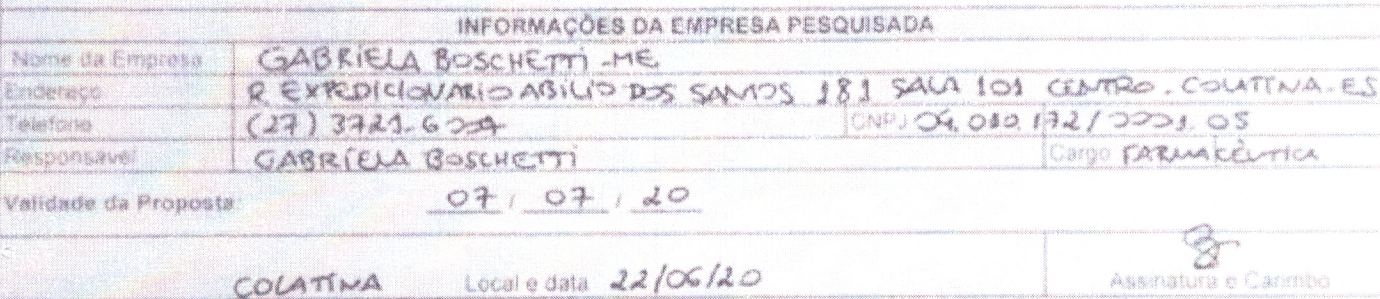 INFORMAÇÕES DA EMPRESA PESQUISADA
Nome da Empresa GABRIELA BOSCHETTI -ME
Endereço R EXPEDICIONARIO ABILIO DOS SANTOS 181 SALA 101 CENTRO. COLATINA-ES
Telefone (27) 3721-6007 CNPJ 04.010.172/0001.05
Responsavel GABRIELA BOSCHETTI Cargo FARMACÊUTICA
Validade da Proposta: 07 / 07 / 20
COLATINA Local e data 22/06/20 Assinatura e Carimbo